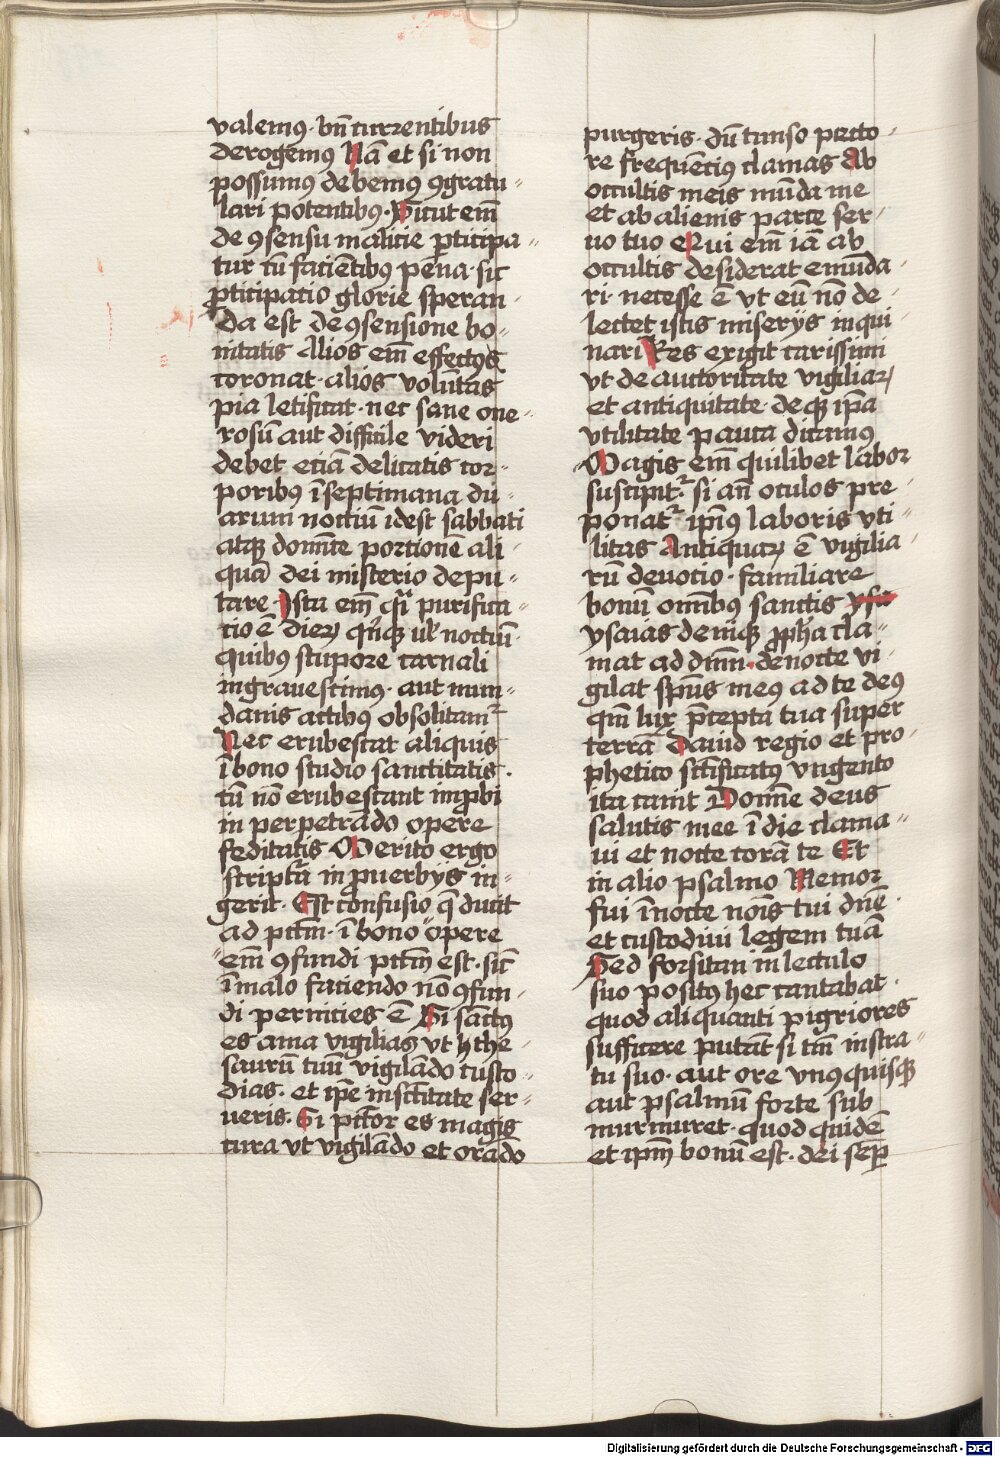 valemꝯ· bn̄ currentibus
derogemꝯ Nā et si non
possumꝯ debemꝯ ꝯgratu-
lari potentibꝯ· Sicut em̄
de ꝯsensu malicie ꝑticipa-
tur cū faciētibus pena· sic
ꝑticipatio glorie speran-
da est de ꝯsensione bo-
nitatis Alios em̄ effectꝯ
coronat· alios volūtas
pia letificat· nec sane one-
rosū aut difficile videri
debet etiā delicatis cor-
poribꝯ ī septimana du-
arum noctiū idest sabbati
atqꝫ domīce portionē ali-
quā dei misterio depu-
tare· Ista em̄ qͥ purifica-
tio ē dierꝝ qͥnqꝫ vel noctiū·
quibꝯ stupore carnali
ingrauescimꝯ· aut mun-
danis actibꝯ obsolitamͬ
Nec erubescat aliquis
ī bono studio sanctitatis·
cū nō erubescant improbi
in perpetrādo opere
feditatis Merito ergo
scriptᷓa in ꝓuerbijs in-
gerit· Est confusio q̄ ducit
ad pctm̄· ī bono opere
em̄ ꝯfundi pctm̄ est· sic̄
ī malo faciendo nō ꝯfun-
di pernicies ē Si sāctꝯ
es ama vigilias vt the-
saurū tuū vigilādo custo-
dias· et ip̄e in sc̄titate ser-
ueris· Si pctor es magis
cura vt vigilādo et orādo
purgeris· dū tunso pecto-
re frequēcius clamas Ab
occultis meis mūda me
et ab alienis parce ser-
uo tuo Qui em̄ iā ab
occultis desiderat emūda-
ri· necesse ē vt eū nō de-
lectet istis miserijs inqui-
nari Res exigit carissimi
vt de auctoritate vigiliaꝝ
et antiquitate· deqꝫ ip̄a
vtilitate pauca dicamꝯ
Magis em̄ quilibet labor
suscipitͬ· si an̄ oculos pre-
ponatͬ ip̄iꝯ laboris vti-
litas Antiquaꝝ ē vigilia-
rū deuocio· familiare
bonū omībꝯ sanctis ysa
ysaias deniqꝫ ꝓpha cla-
mat ad dn̄m· de nocte vi-
gilat sp̄us meꝯ ad te deꝯ
qm̄ lux p̄cepta tua super
terrā Dauid regio et pro-
phetico sc̄ificatꝯ vngento
ita canit Domīe deus
salutis mee ī die clama-
ui et nocte corā te Et
in alio psalmo Memor
fui ī nocte nōis tui dn̄e
et custodiui legem tuā
Sed forsitan in lectulo
suo positꝯ hec cantabat·
quod aliquanti pigriores
sufficere putāt si tm̄ in stra-
tu suo· aut ore vnꝯquisqꝫ
aut psalmū forte sub
murmuret· quod quidē
et ip̄m bonū est· dei semꝑ
Digitalisierung gefördert durch die Deutsche Forschungsgemeinschaft - DFG